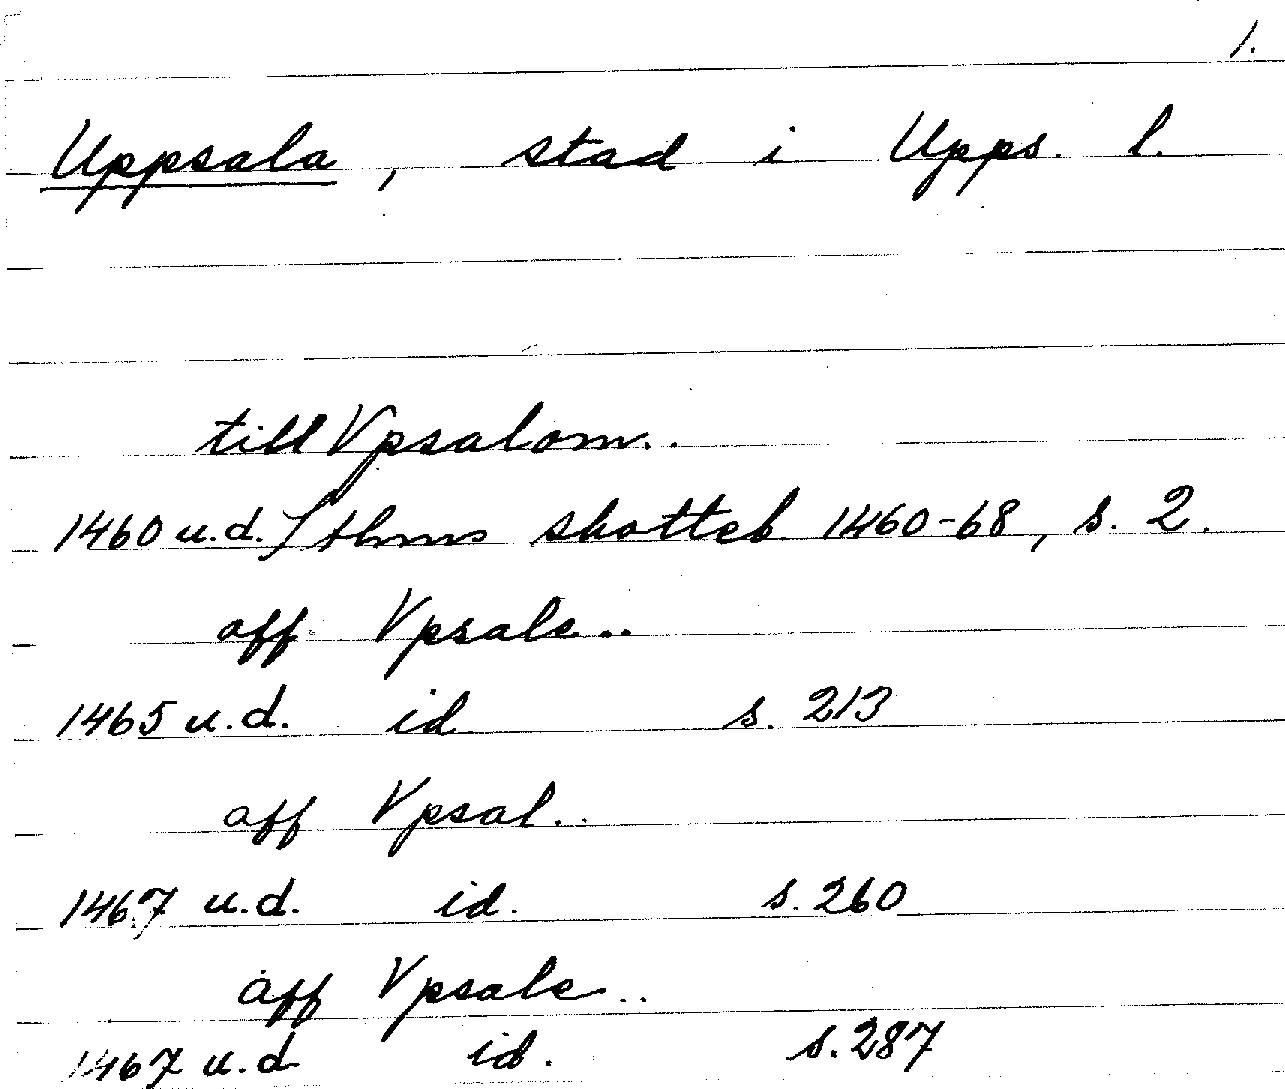 1.
Uppsala, stad i Upps. l.
till Vpsalom..
1460 u.d. Sthms skotteb 1460-68, s. 2.
aff Vpsale..
1465 u.d. id s. 213
aff Vpsal..
1467 u.d. id. s. 260
aff Vpsale..
1467 u.d id. s. 287